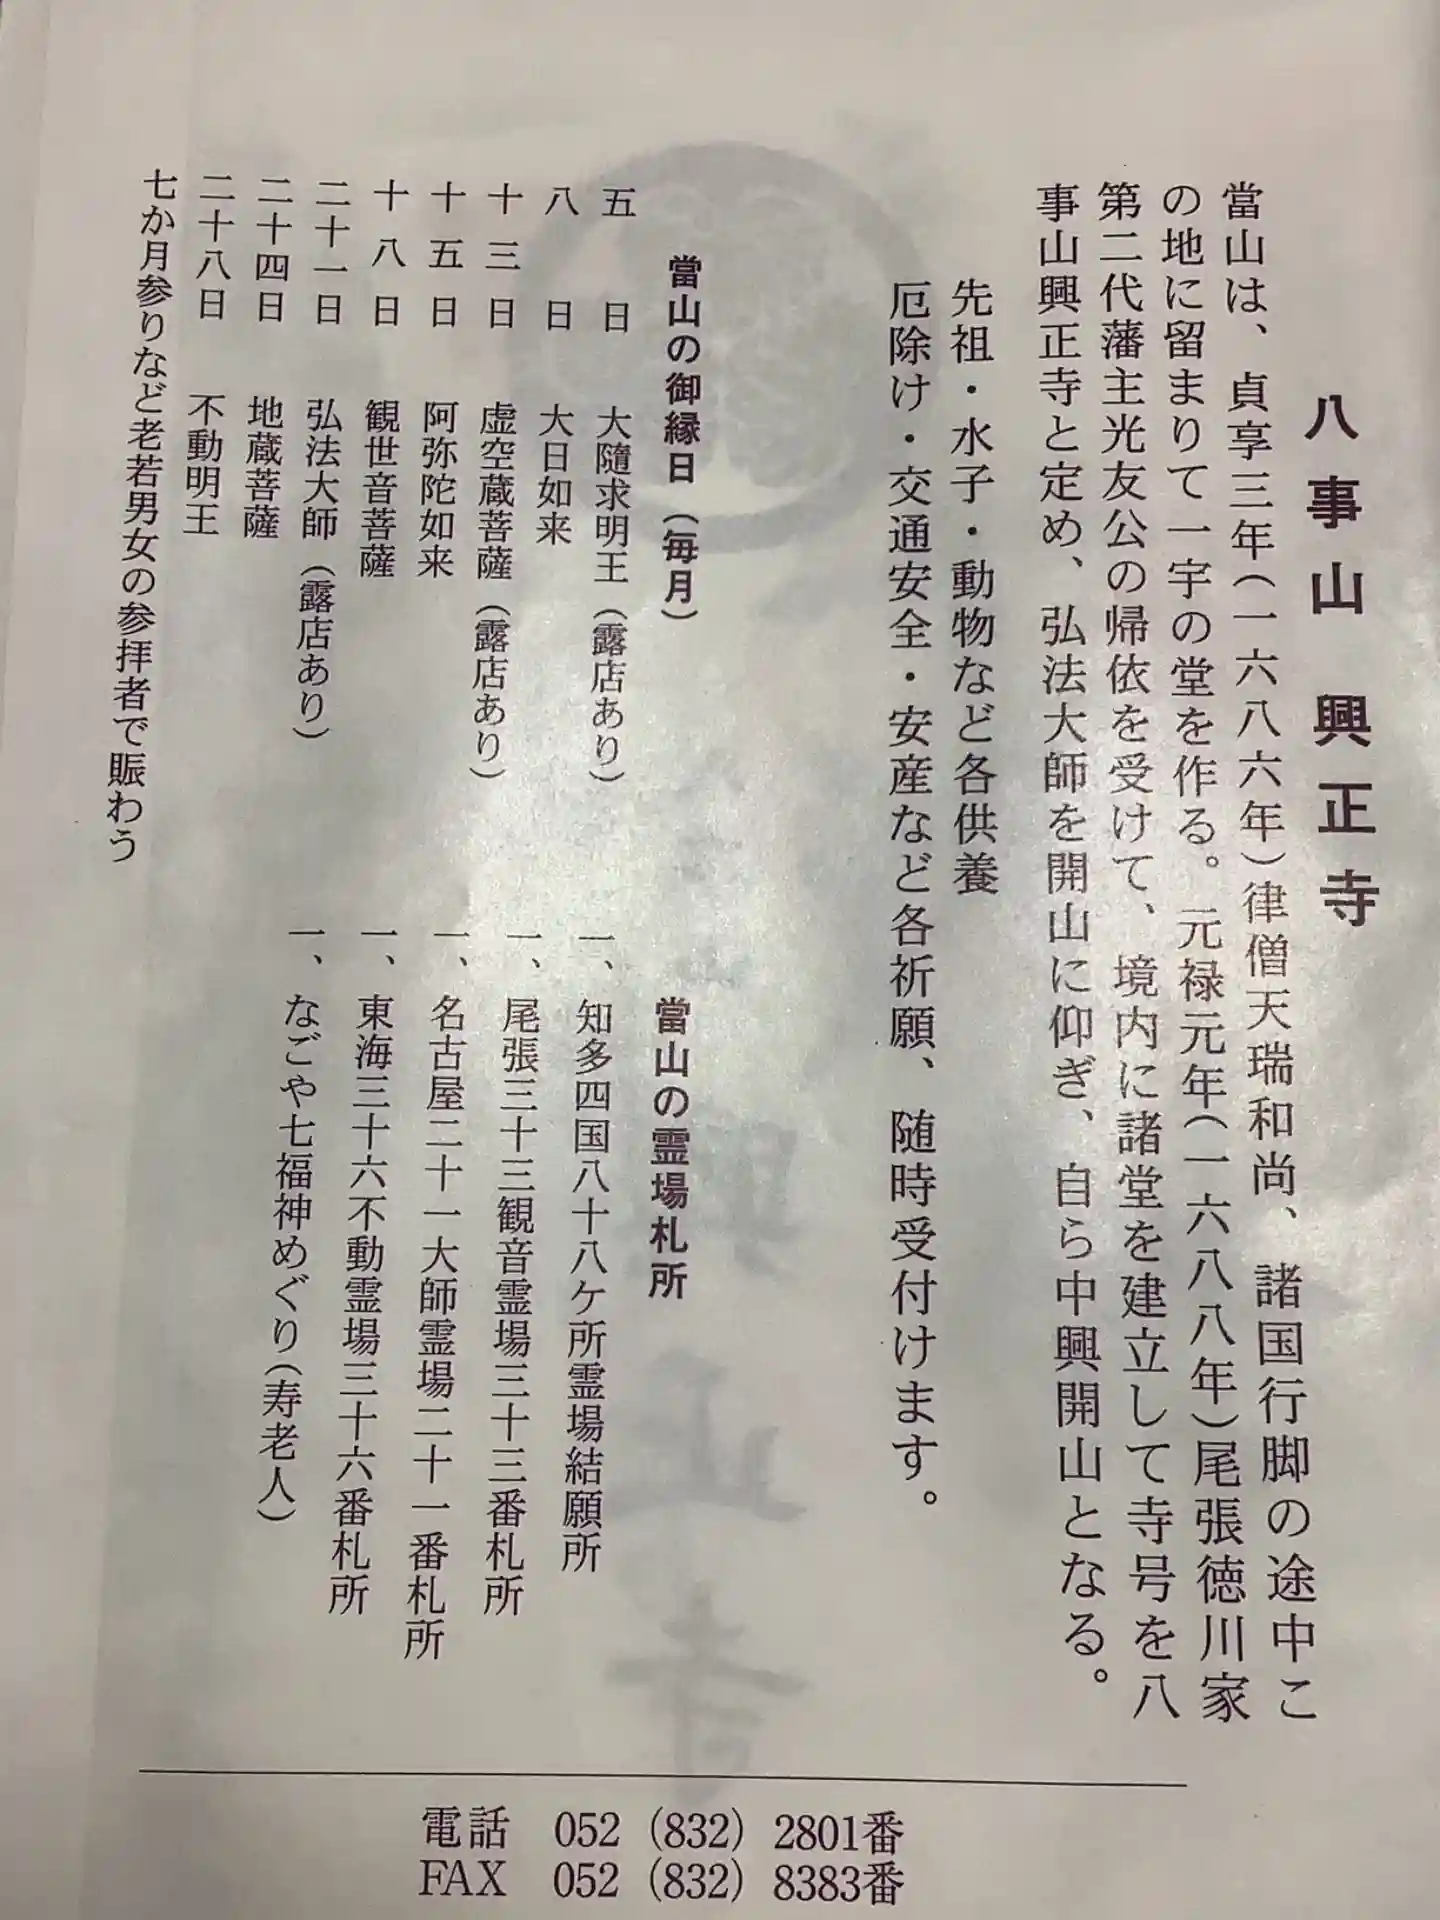 八事山 興正寺
當山は、貞享三年(一六八六年)律僧天瑞和尚、諸国行脚の途中こ
の地に留まりて一宇の堂を作る。元禄元年(一六八八年)尾張徳川家
第二代藩主光友公の帰依を受けて、境内に諸堂を建立して寺号を八
事山興正寺と定め、弘法大師を開山に仰ぎ、自ら中興開山となる。
先祖・水子・動物など各供養
厄除け・交通安全・安産など各祈願、随時受付けます。
當山の御縁日(毎月)
五日 大隨求明王(露店あり)
八日 大日如来
十三日 虚空蔵菩薩(露店あり)
十五日 阿弥陀如来
十八日 観世音菩薩
二十一日 弘法大師(露店あり)
二十四日 地蔵菩薩
二十八日 不動明王
七か月参りなど老若男女の参拝者で賑わう
當山の霊場札所
一、知多四国八十八ケ所霊場結願所
一、尾張三十三観音霊場三十三番札所
一、名古屋二十一大師霊場二十一番札所
一、東海三十六不動霊場三十六番札所
一、なごや七福神めぐり(寿老人)
電話 052(832)2801番
FAX 052(832)8383番